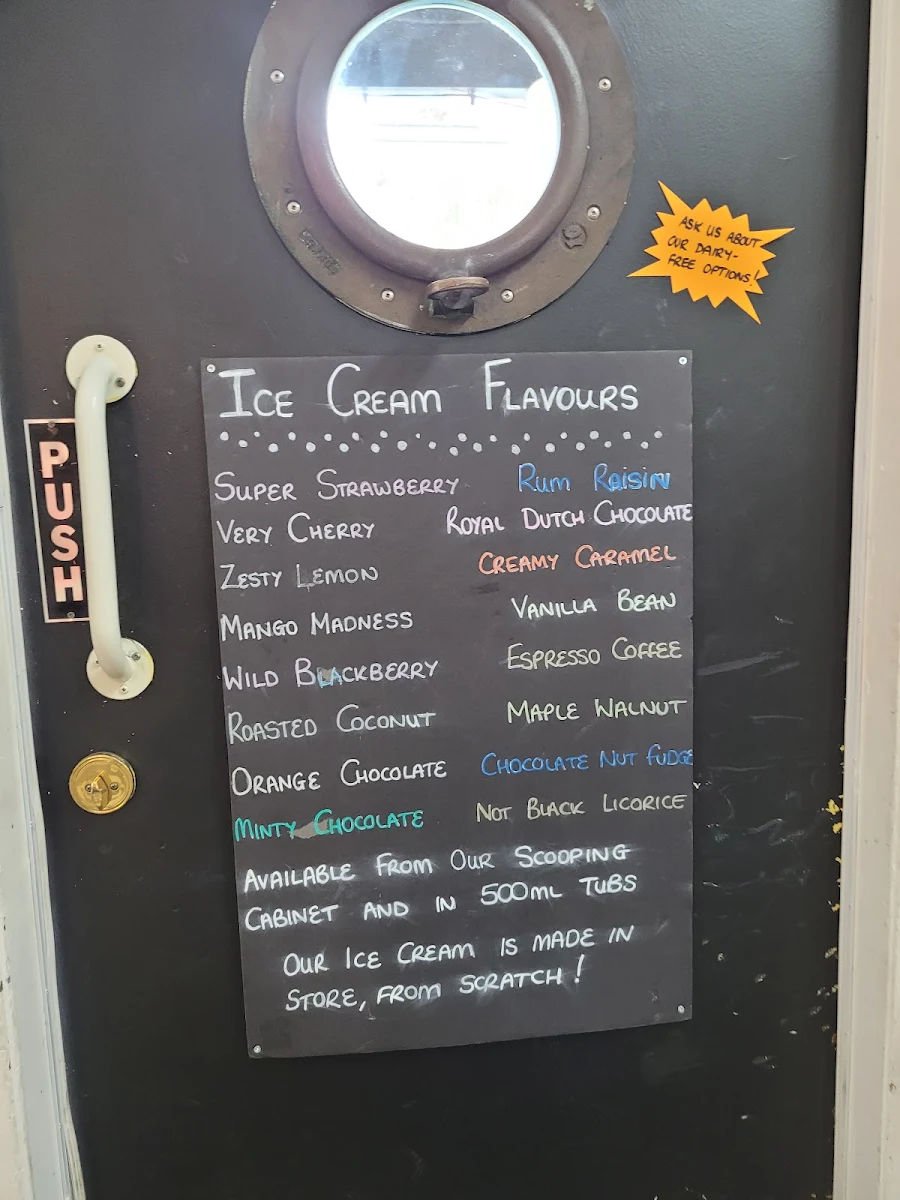 ASK US ABOUT
OUR DAIRY-
FREE OPTIONS!
PUSH
ICE CREAM FLAVOURS
SUPER STRAWBERRY
RUM RAISIN
VERY CHERRY
ROYAL DUTCH CHOCOLATE
ZESTY LEMON
CREAMY CARAMEL
MANGO MADNESS
VANILLA BEAN
WILD BLACKBERRY
ESPRESSO COFFEE
ROASTED COCONUT
MAPLE WALNUT
ORANGE CHOCOLATE
CHOCOLATE NUT FUDGE
MINTY CHOCOLATE
NOT BLACK LICORICE
AVAILABLE FROM OUR SCOOPING
CABINET AND IN 500ML TUBS
OUR ICE CREAM IS MADE IN
STORE, FROM SCRATCH!